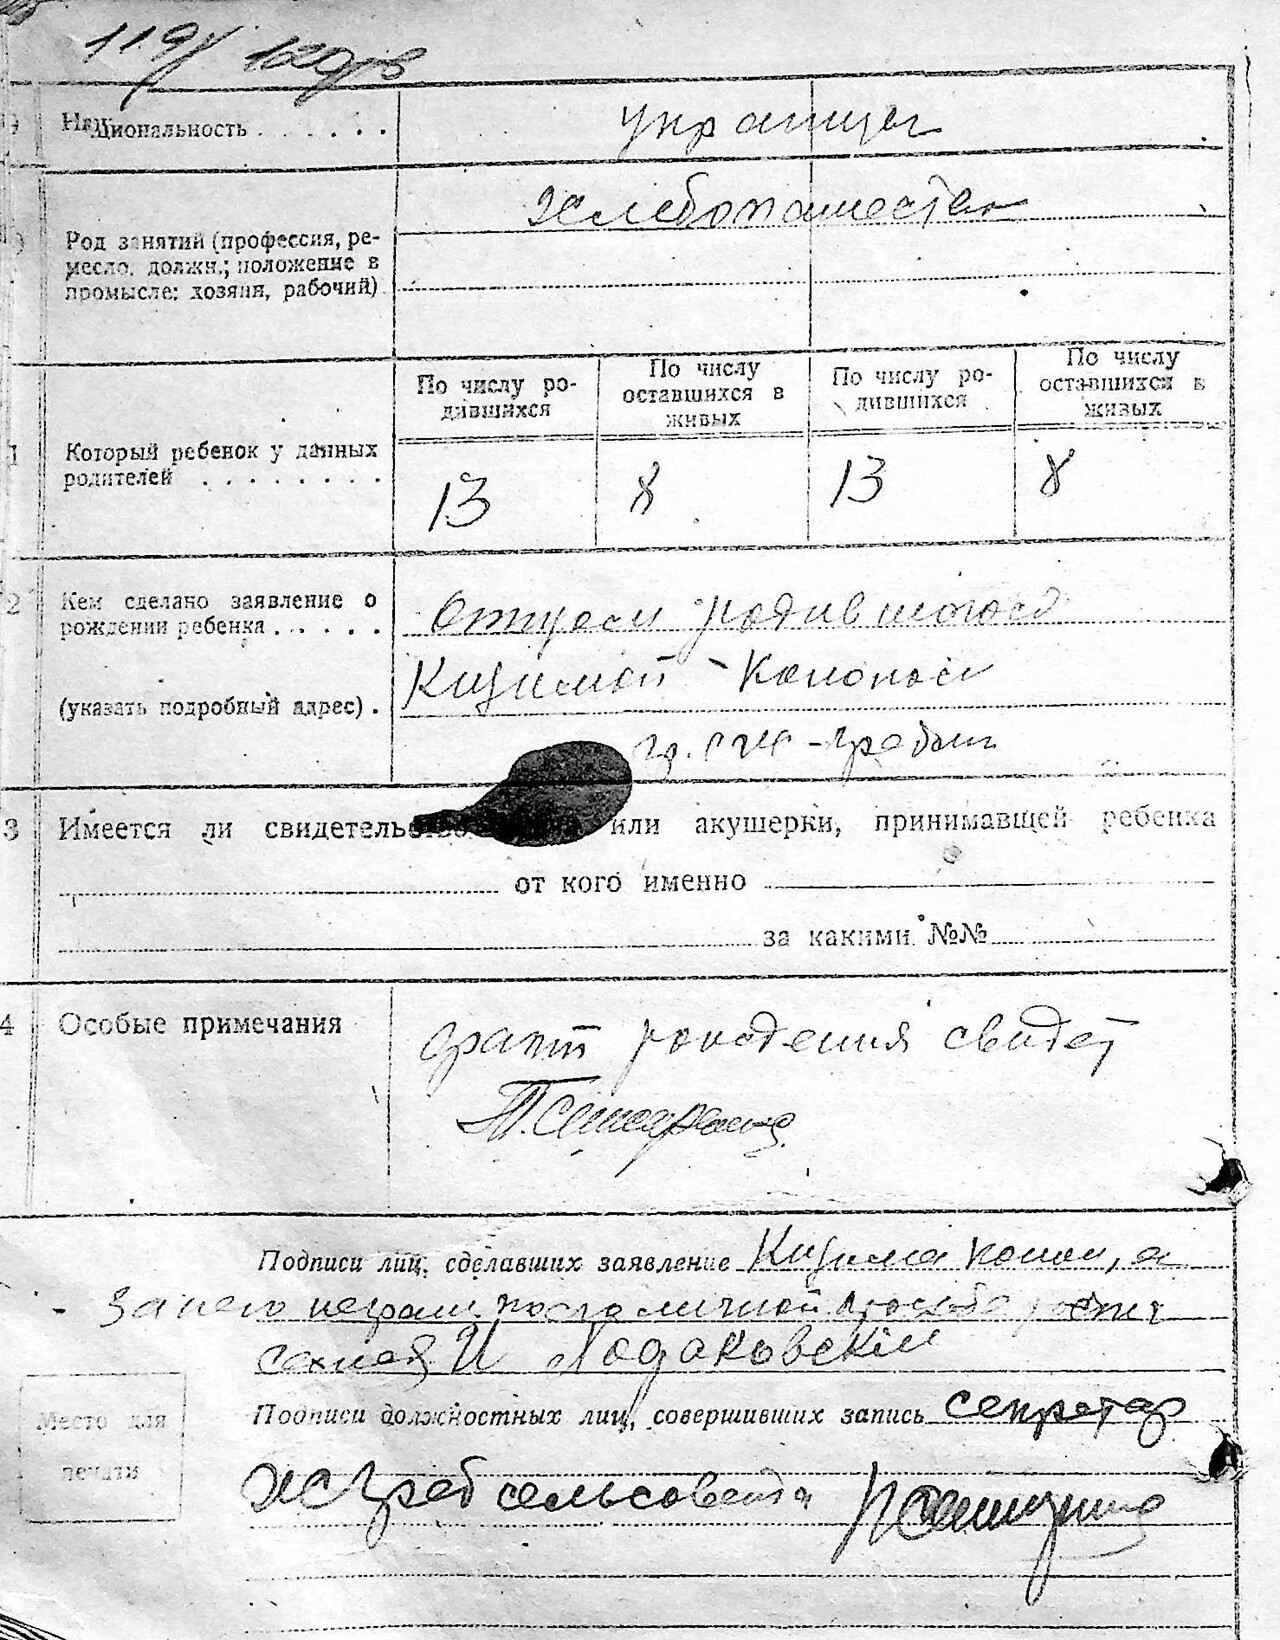 Национальность
украинцы
хлебопашество
Род занятий (профессия, ре-
месло, должн.; положение в
промысле: хозяин, рабочий)
По числу ро-
дившихся
По числу
оставшихся в
живых
По числу ро-
дившихся
По числу
оставшихся в
живых
Который ребенок у данных
родителей
13 8 13 8
Кем сделано заявление о
рождении ребенка
(указать подробный адрес).
Отцом родившогося
Кизимой Кононом
3 Имеется ли свидетельство или акушерки, принимавшей ребенка
от кого именно
за какими №№
4 Особые примечания
факт рождения свидет
Подписи лиц, сделавших заявление Кизима Конон, а
за него неграм. по его личной просьбе
И Лодаковскій
Место для
печати
Подписи должностных лиц, совершивших запись секретар
сельсовета